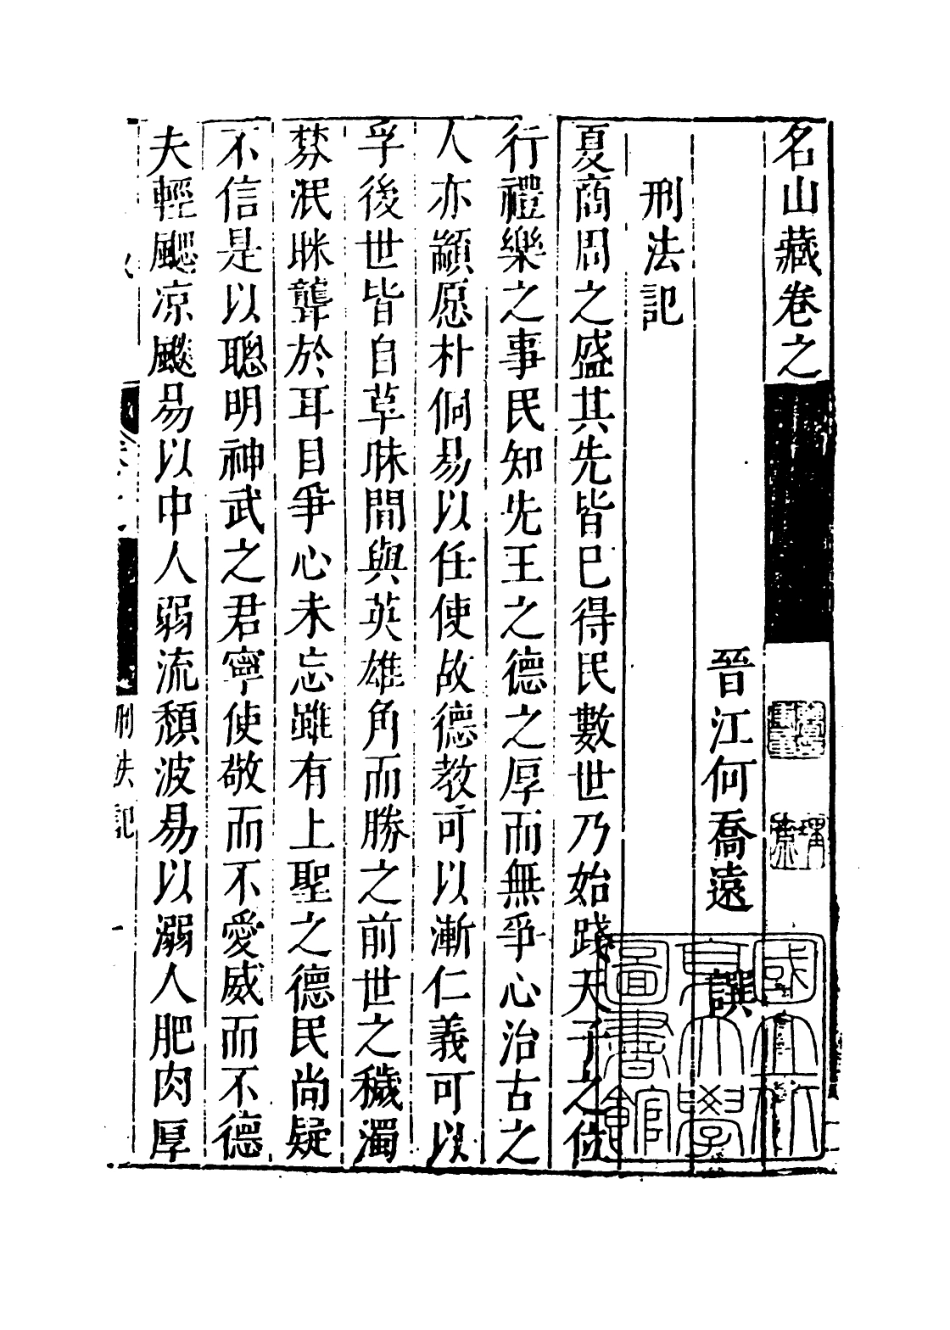 名山藏卷之
晉江何喬遠 譔
刑法記
夏商周之盛其先皆巳得民數世乃始踐天子之位
行禮樂之事民知先王之德之厚而無爭心治古之
人亦顓愿朴侗易以任使故德教可以漸仁義可以
孚後世皆自草昧間與英雄角而勝之前世之穢濁
棼泯眯聾於耳目爭心未忘雖有上聖之德民尚疑
不信是以聰明神武之君寧使敬而不愛威而不德
夫輕颸凉颷易以中人弱流頹波易以溺人肥肉厚
刑法記
國立北京大學圖書館